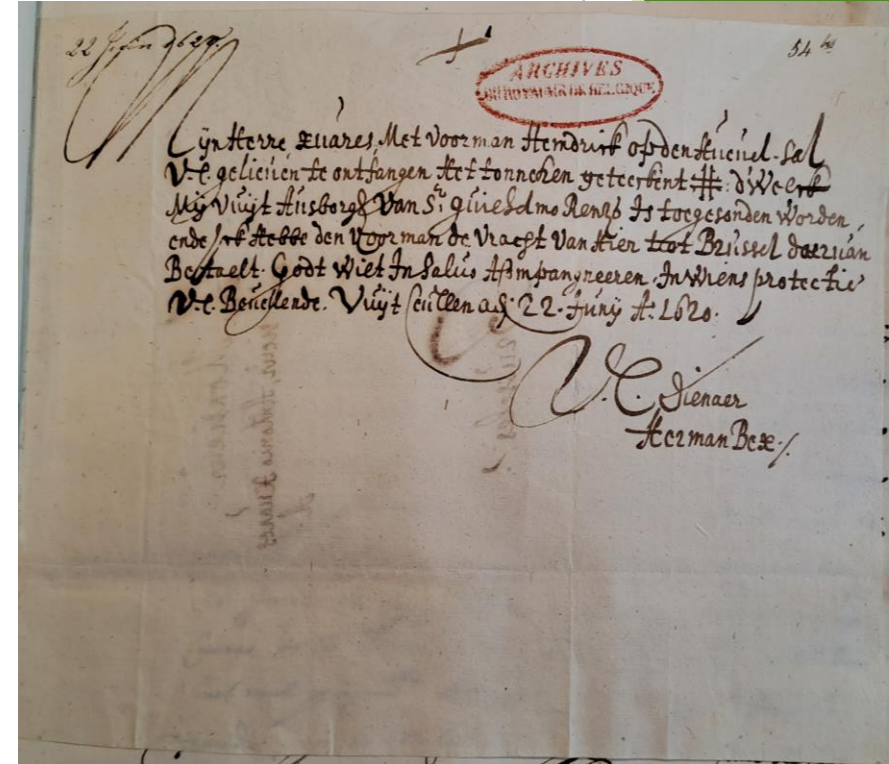 22 Juin 1620.
54 bis
ARCHIVES
DU ROYAUME DE BELGIQUE
Mijn Herre xuares, Met voorman Hendrick op den Huevel sal
V.L. gelieven te ontfangen Het tonneken geteerkent #. d'Welck
Mij Vuijt Ausborgh Van Sr. guielelmo Renzo Is toegesonden worden,
ende Jck Hebbe den Voorman de Vracht Van Hier toot Brussel daervan
Betaelt. Godt wiet In Salvo Accompangneeren. In wiens protectie
V.L. Bevellende. Vuijt Ceullen adj 22. Junij Aº. 1620.
V.L. Dienaer
Herman Bex ./.